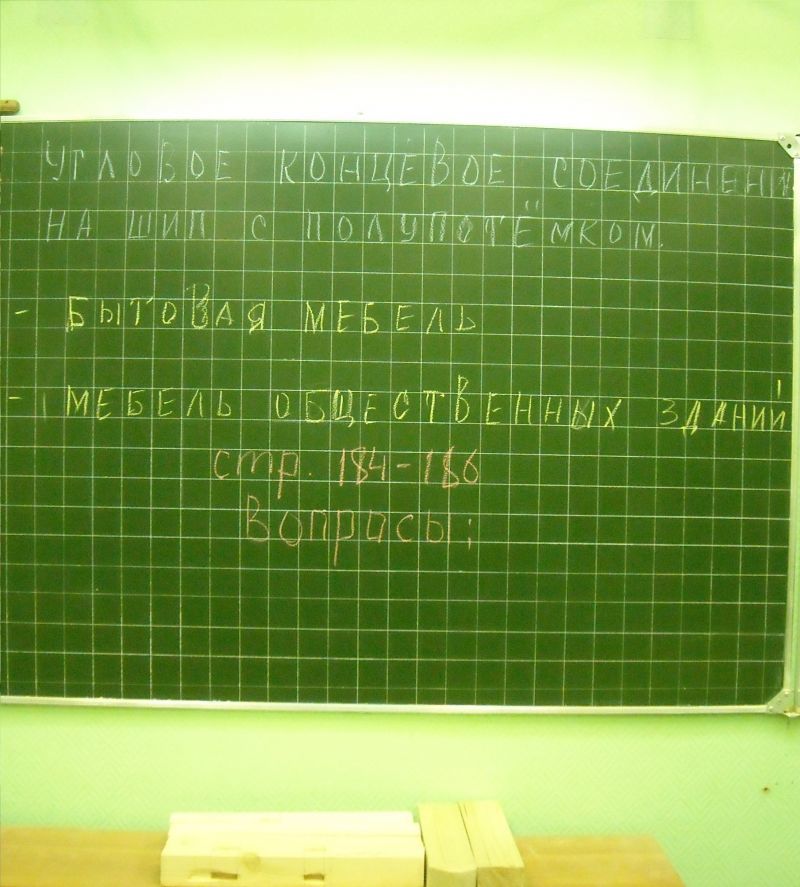 УГЛОВОЕ КОНЦЕВОЕ СОЕДИНЕНИ
НА ШИП С ПОЛУПОТЁМКОМ.
- БЫТОВАЯ МЕБЕЛЬ
- МЕБЕЛЬ ОБЩЕСТВЕННЫХ ЗДАНИЙ
стр. 184-186
Вопросы: